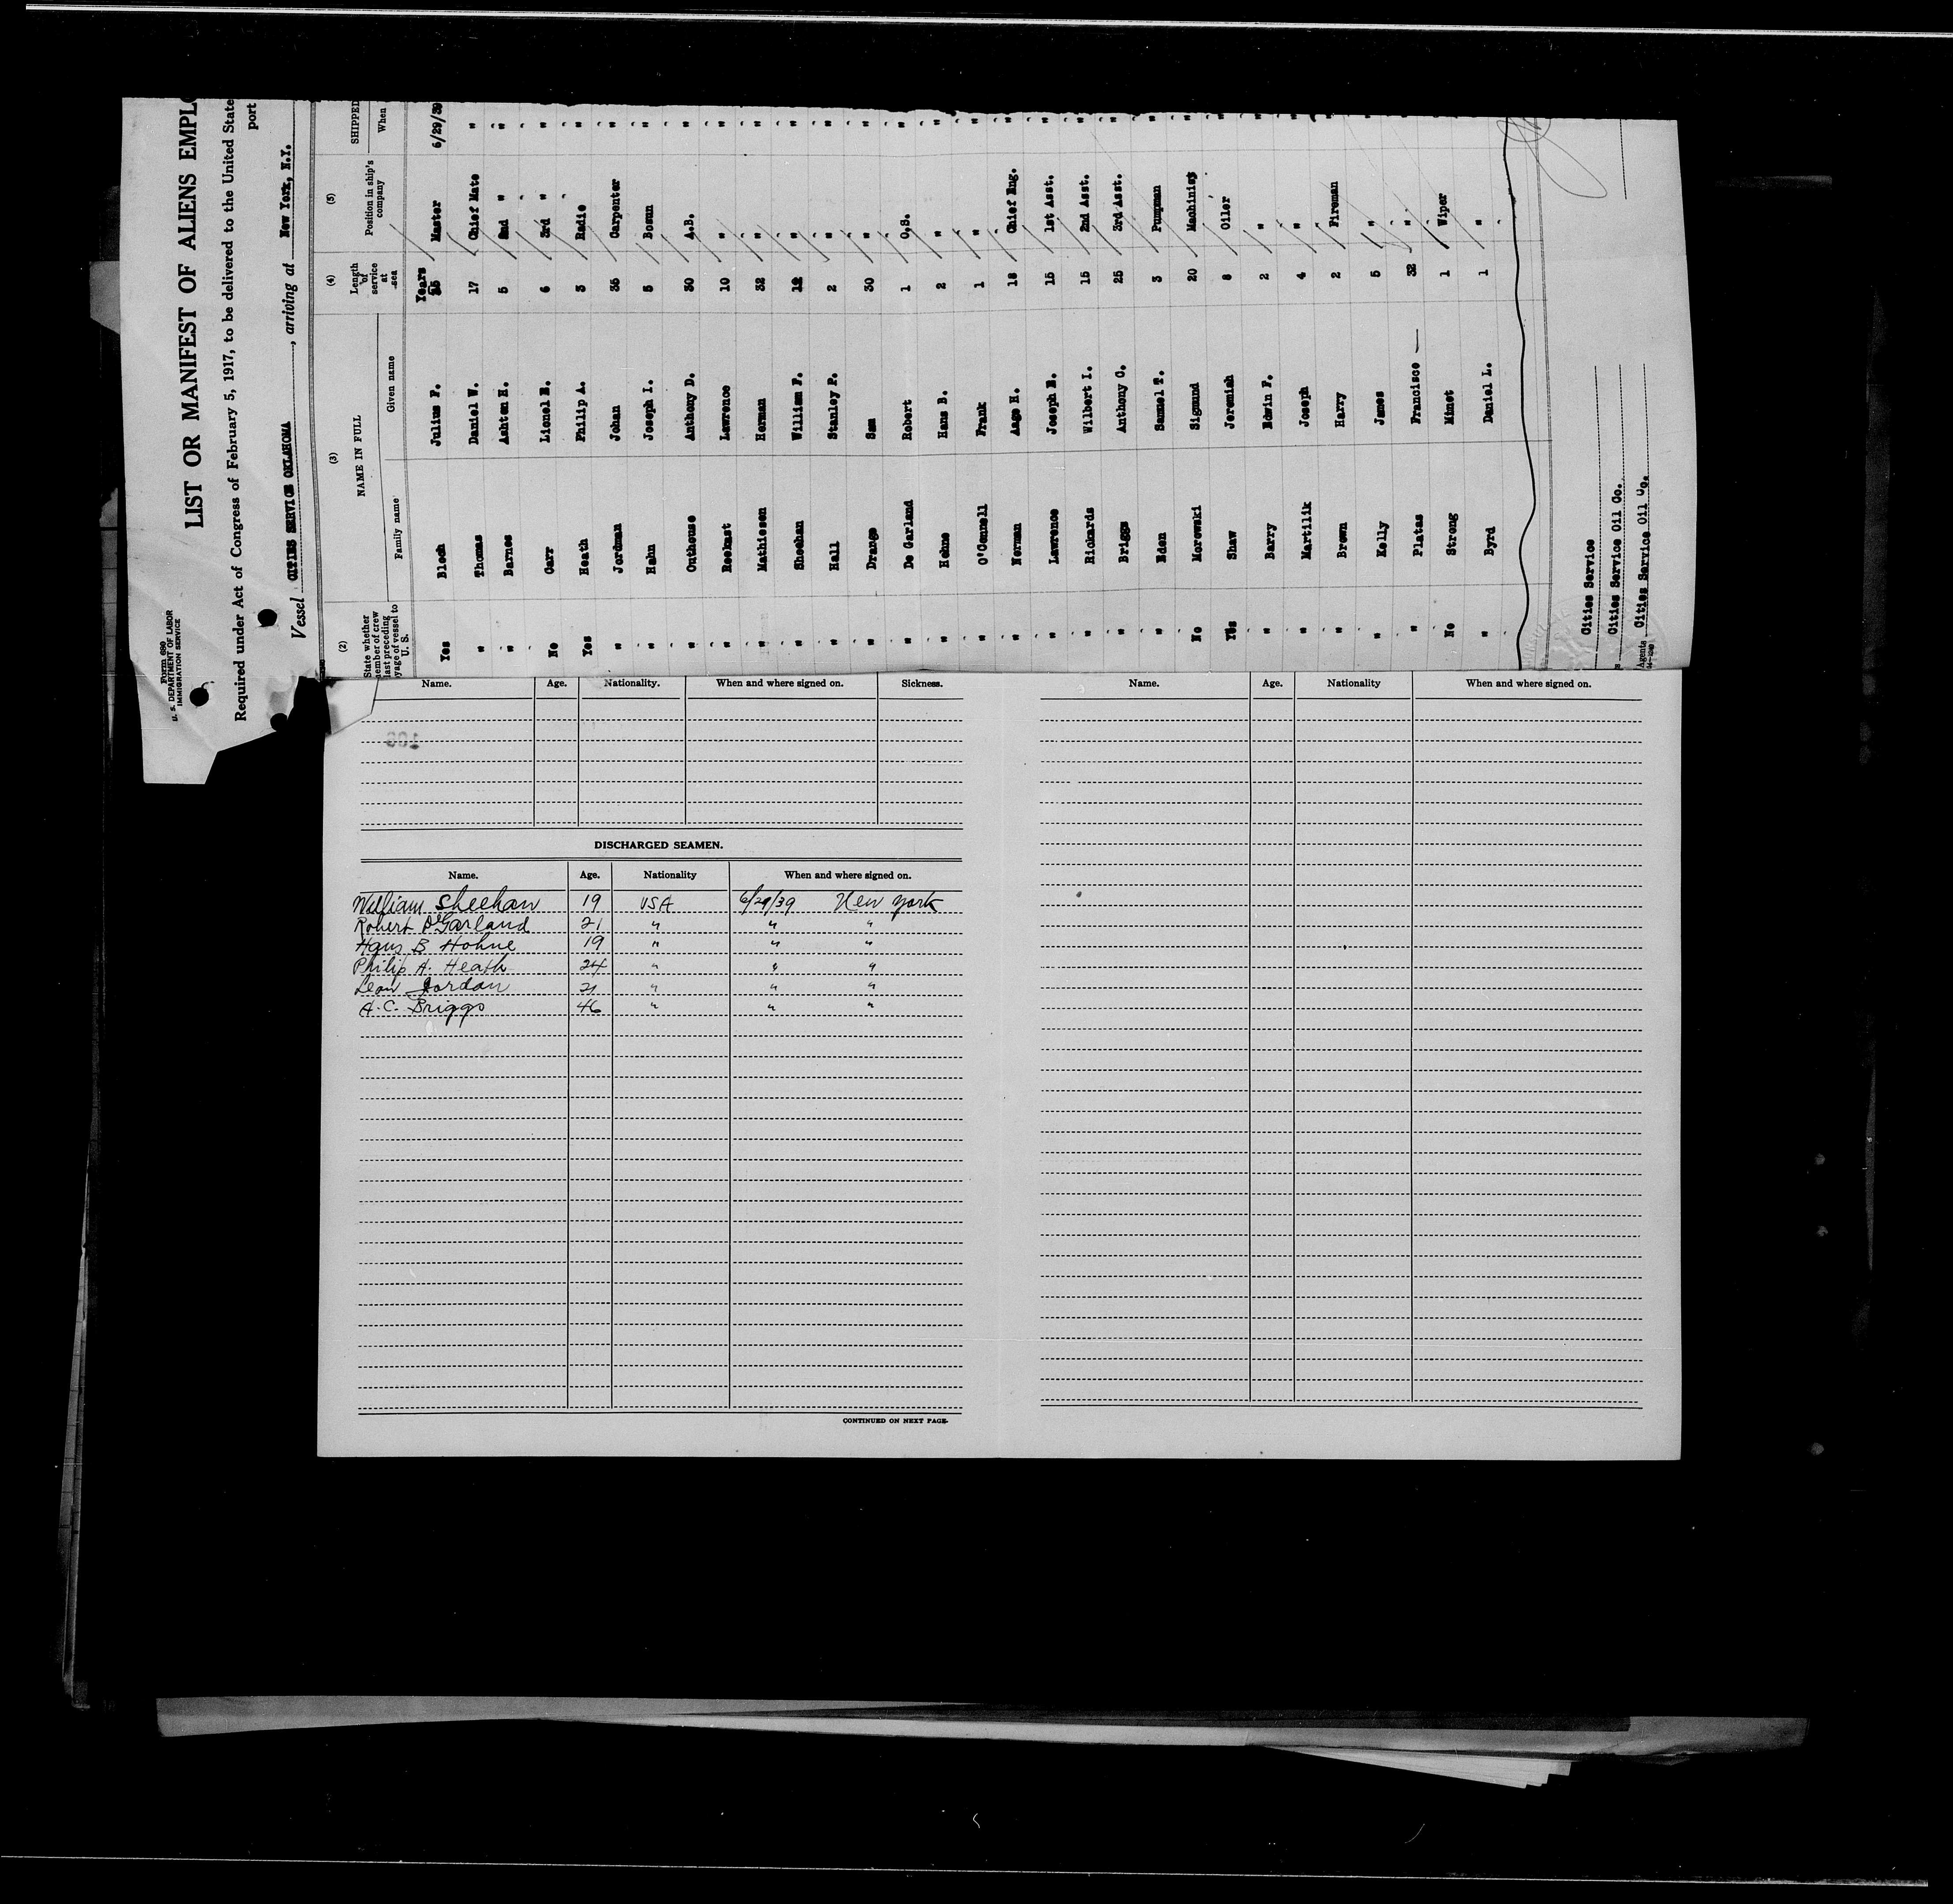 Form 680
U. S. DEPARTMENT OF LABOR
IMMIGRATION SERVICE
LIST OR MANIFEST OF ALIENS EMPLO
Required under Act of Congress of February 5, 1917, to be delivered to the United State
port
Vessel CITIES SERVICE OKLAHOMA, arriving at New York, N.Y.
(2) (3) (4) (5)
State whether member of crew last preceding voyage of vessel to U. S. NAME IN FULL Family name Given name Length of service at sea Position in ship's company SHIPPED When
Yes Blech Julius F. Years Master 6/29/39
" Thomas Daniel W. 17 Chief Mate "
" Barnes Ashton H. 5 2nd " "
No Carr Lionel E. 6 3rd " "
Yes Heath Philip A. 3 Radio "
" Jordman Johan 35 Carpenter "
" Hahn Joseph I. 5 Bosun "
" Outhouse Anthony D. 30 A.B. "
" Reekast Lawrence 10 " "
" Mathiesen Herman 32 " "
" Sheehan William F. 12 " "
" Hall Stanley P. 2 " "
" Drange Sam 30 " "
" De Garland Robert 1 O.S. "
" Hohne Hans B. 2 " "
" O'Connell Frank 1 " "
" Herman Aage H. 18 Chief Eng. "
" Lawrence Joseph E. 15 1st Asst. "
" Rickards Wilbert I. 15 2nd Asst. "
" Briggs Anthony C. 25 3rd Asst. "
" Eden Samuel T. 3 Pumpman "
No Morowski Sigmund 20 Machinist "
Yes Shaw Jeremiah 8 Oiler "
" Barry Edwin F. 2 " "
" Martilik Joseph 4 " "
" Brown Harry 2 Fireman "
" Kelly James 5 " "
" Platas Francisco 32 " "
No Strong Minot 1 Wiper "
" Byrd Daniel L. 1 "
Cities Service
Cities Service Oil Co.
Agents Cities Service Oil Co.
Name. Age. Nationality. When and where signed on. Sickness.
DISCHARGED SEAMEN.
Name. Age. Nationality When and where signed on.
William Sheehan 19 USA 6/29/39 New York
Robert DeGarland 21 " " "
Hans B Hohne 19 " " "
Philip A. Heath 24 " " "
Leon Jordan 21 " " "
A. C. Briggs 46 " " "
CONTINUED ON NEXT PAGE.
Name. Age. Nationality When and where signed on.